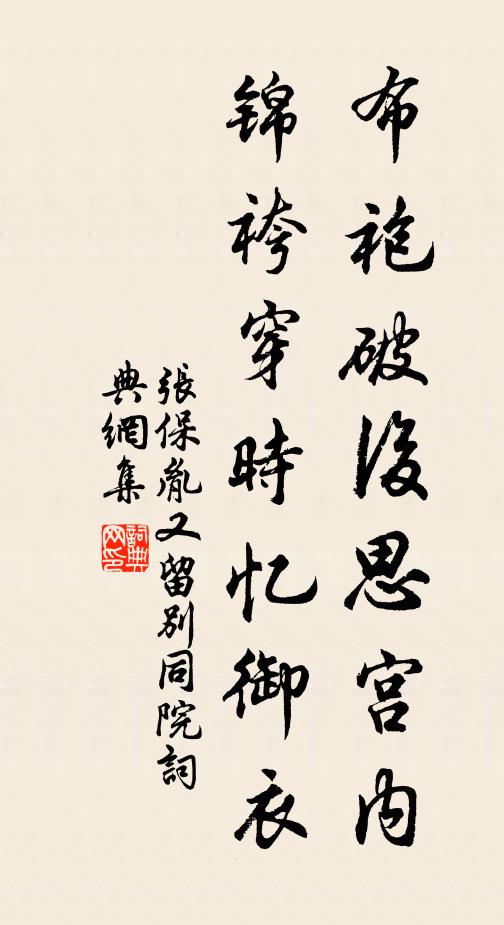 布袍破後思宫内
锦袴穿時忆御衣
張保胤又留别同院詞
典網集
詞典
网印